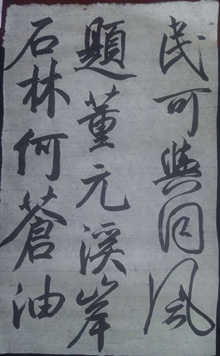 民可與同風
題董元溪岸
石林何蒼油